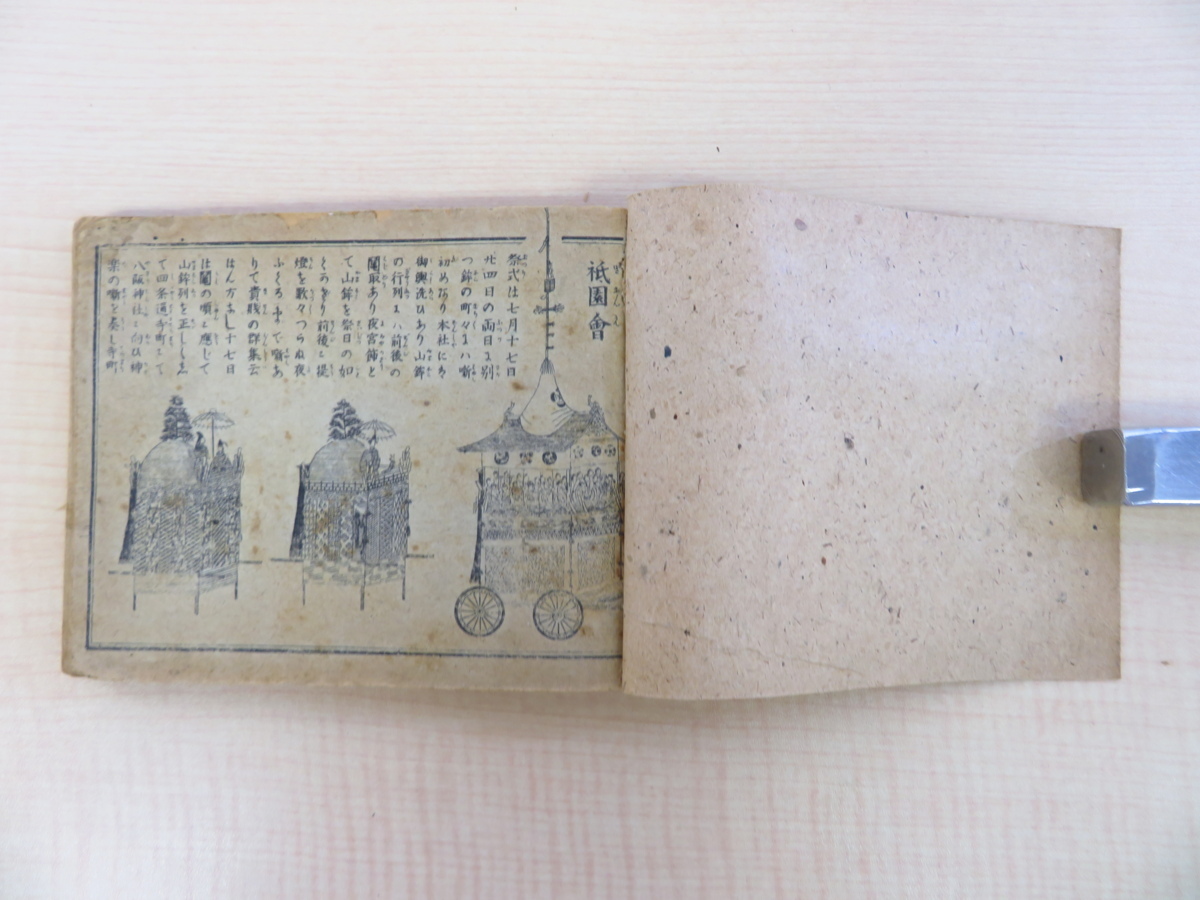 祇園會
祭式は七月十七日
廿四日の両日に別
つ鉾の町々にハ囃
初めあり本社に
御輿洗ひあり山鉾
の行列にハ前後の
鬮取あり夜宮餝と
て山鉾を祭日の如
くかざり前後に提
燈を数々つらね夜
ふくるまで囃あ
りて貴賤の群集云
はん方なし十七日
は鬮の順に應じて
山鉾列を正し
て四条通寺町にて
八阪神社に向ひ神
楽の囃を奏し寺町